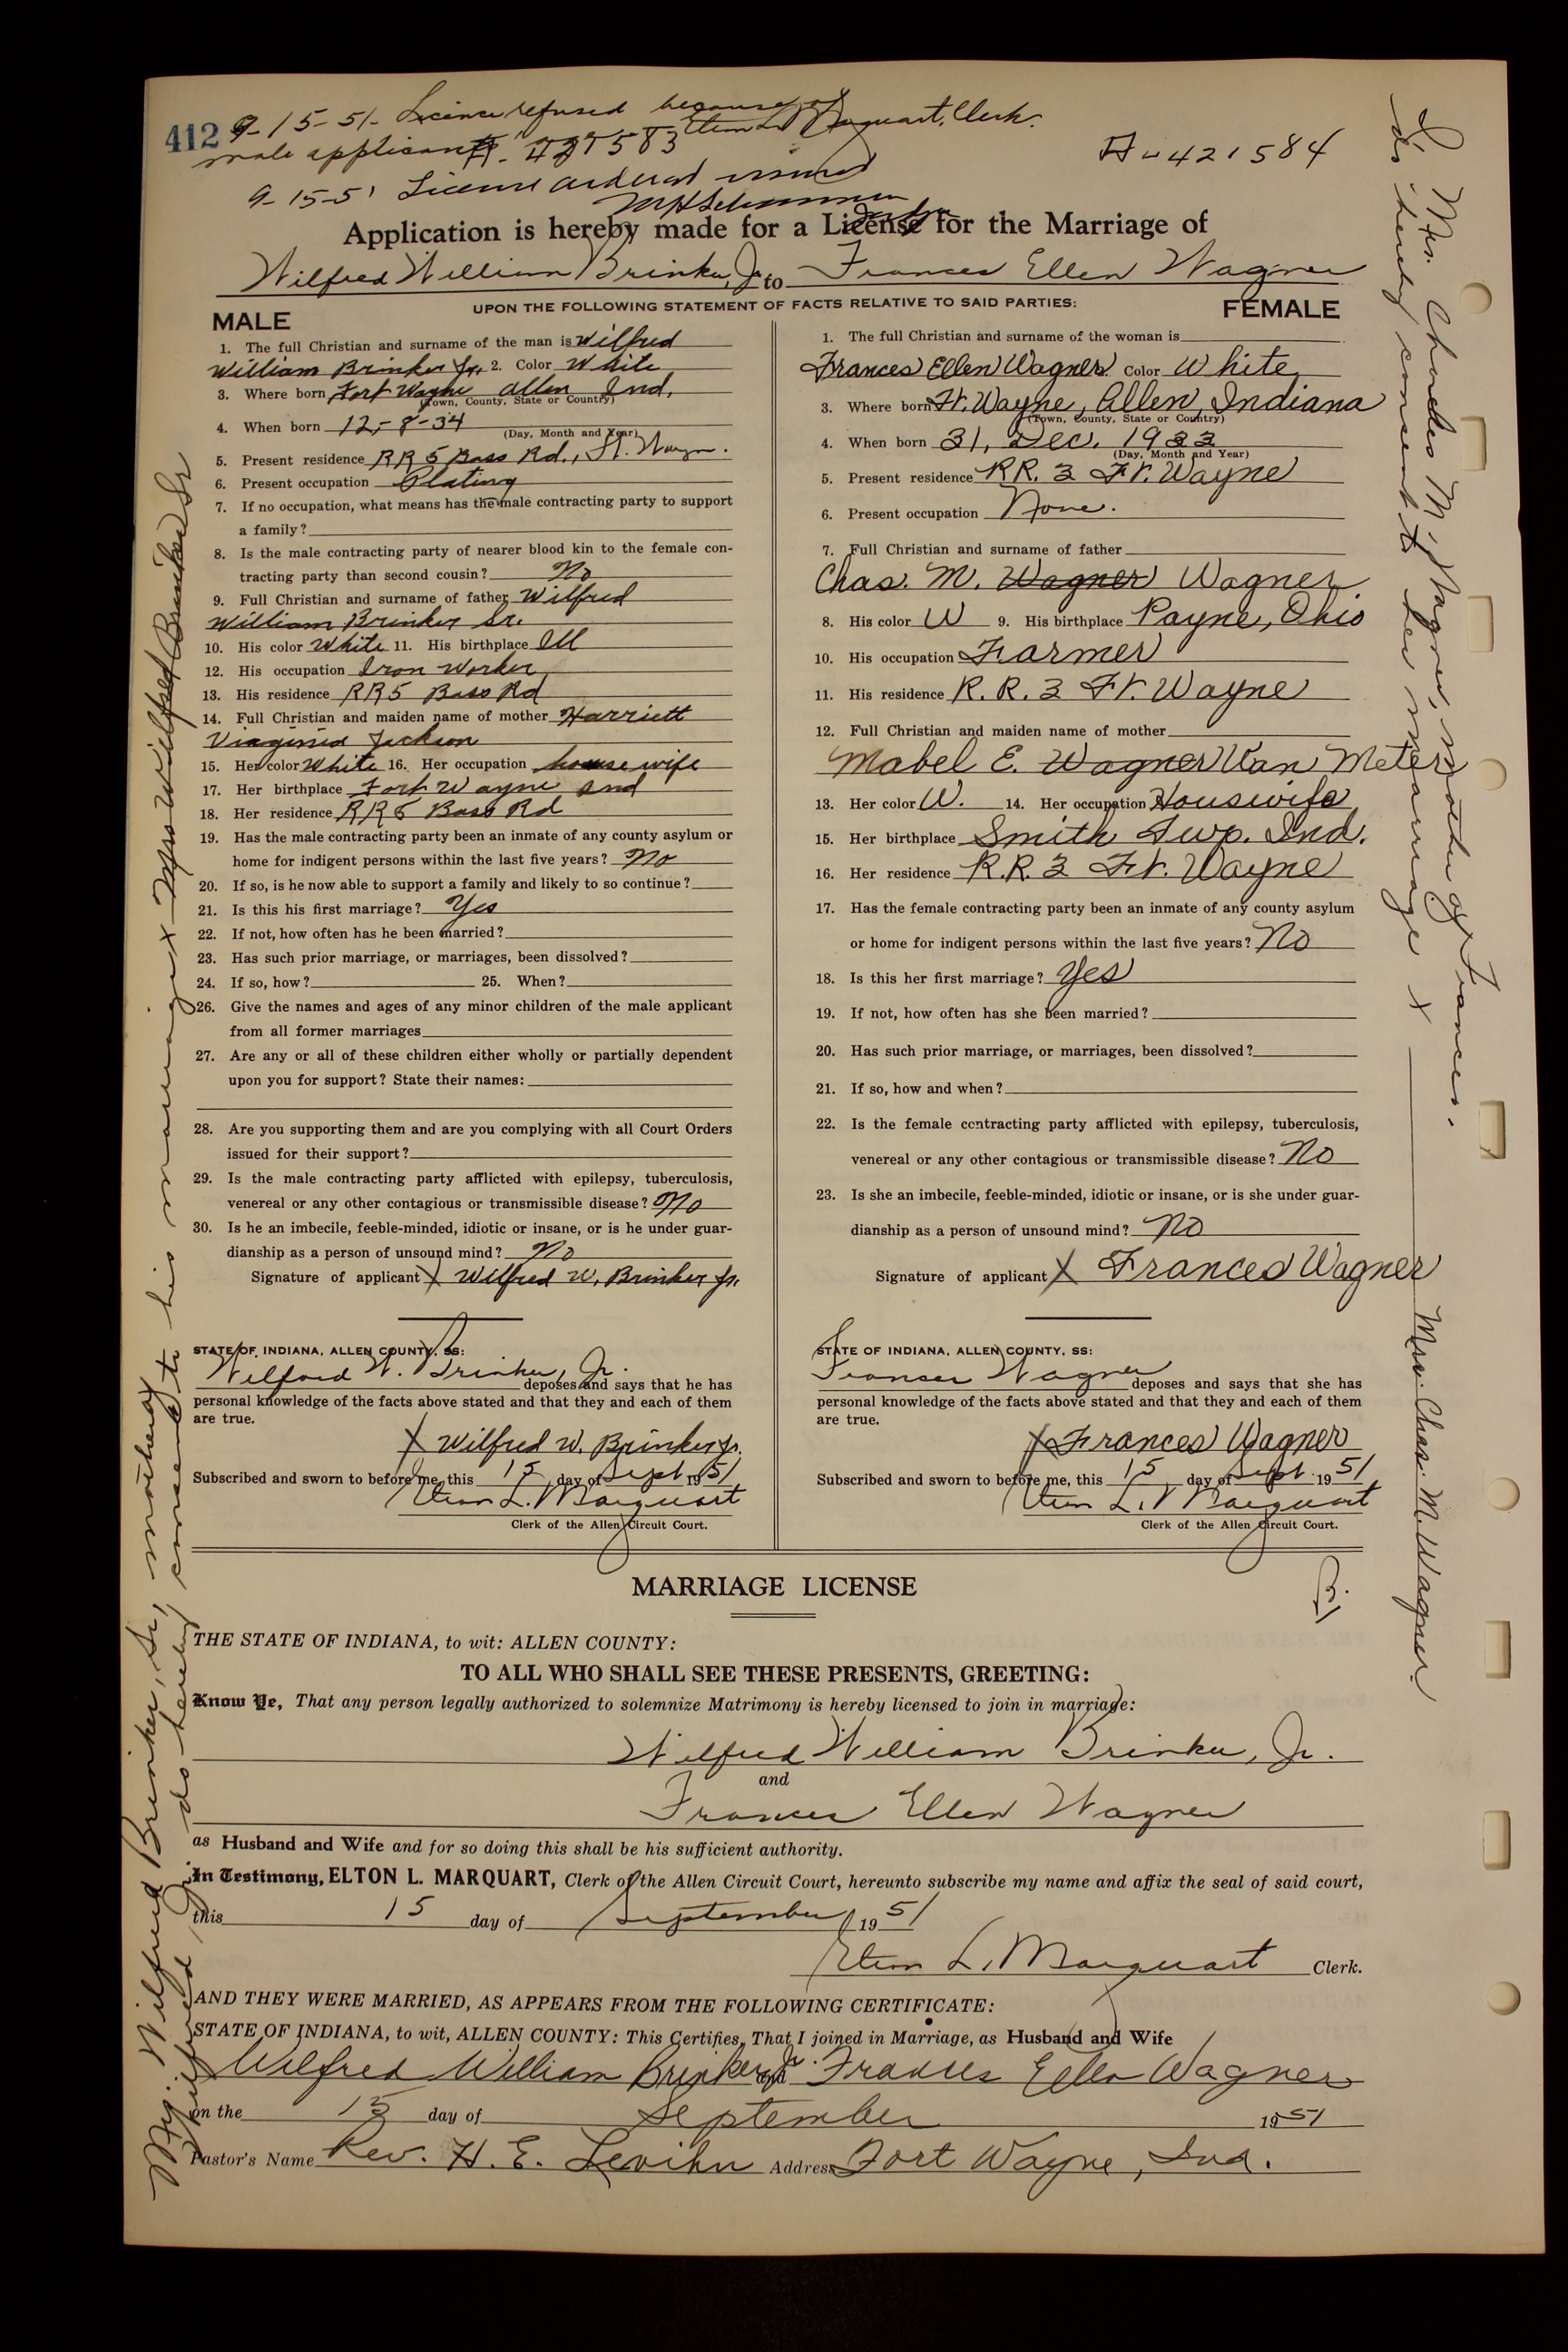 412 9-15-51- License refused because of
male applicant's age Elton L. Marquart, Clerk.
A-421583
A-421584
9-15-51 License ordered issued
Judge
Application is hereby made for a License for the Marriage of
Wilfred William Brinker, Jr. to Frances Ellen Wagner
UPON THE FOLLOWING STATEMENT OF FACTS RELATIVE TO SAID PARTIES:
MALE
1. The full Christian and surname of the man is Wilfred
William Brinker Jr. 2. Color White
3. Where born Fort Wayne Allen Ind.
(Town, County, State or Country)
4. When born 12-8-34
(Day, Month and Year)
5. Present residence RR 5 Bass Rd., Ft. Wayne.
6. Present occupation Plating
7. If no occupation, what means has the male contracting party to support
a family?
8. Is the male contracting party of nearer blood kin to the female con-
tracting party than second cousin? No
9. Full Christian and surname of father Wilfred
William Brinker Sr.
10. His color White 11. His birthplace Ill
12. His occupation Iron Worker
13. His residence RR5 Bass Rd
14. Full Christian and maiden name of mother Harriett
Virginia Jackson
15. Her color White 16. Her occupation housewife
17. Her birthplace Fort Wayne Ind
18. Her residence RR5 Bass Rd
19. Has the male contracting party been an inmate of any county asylum or
home for indigent persons within the last five years? No
20. If so, is he now able to support a family and likely to so continue?
21. Is this his first marriage? Yes
22. If not, how often has he been married?
23. Has such prior marriage, or marriages, been dissolved?
24. If so, how? 25. When?
26. Give the names and ages of any minor children of the male applicant
from all former marriages
27. Are any or all of these children either wholly or partially dependent
upon you for support? State their names:
28. Are you supporting them and are you complying with all Court Orders
issued for their support?
29. Is the male contracting party afflicted with epilepsy, tuberculosis,
venereal or any other contagious or transmissible disease? No
30. Is he an imbecile, feeble-minded, idiotic or insane, or is he under guar-
dianship as a person of unsound mind? No
Signature of applicant X Wilfred W. Brinker Jr.
STATE OF INDIANA, ALLEN COUNTY, SS:
Wilfred W. Brinker, Jr. deposes and says that he has
personal knowledge of the facts above stated and that they and each of them
are true.
X Wilfred W. Brinker Jr.
Subscribed and sworn to before me, this 15 day of Sept 1951
Elton L. Marquart
Clerk of the Allen Circuit Court.
FEMALE
1. The full Christian and surname of the woman is
Frances Ellen Wagner Color White
3. Where born Ft. Wayne, Allen, Indiana
(Town, County, State or Country)
4. When born 31, Dec. 1933
(Day, Month and Year)
5. Present residence RR. 3 Ft. Wayne
6. Present occupation None.
7. Full Christian and surname of father
Chas. M. Wagner Wagner
8. His color W 9. His birthplace Payne, Ohio
10. His occupation Farmer
11. His residence R. R. 3 Ft. Wayne
12. Full Christian and maiden name of mother
Mabel E. Wagner Van Meter
13. Her color W. 14. Her occupation Housewife
15. Her birthplace Smith Twp. Ind.
16. Her residence R.R. 3 Ft. Wayne
17. Has the female contracting party been an inmate of any county asylum
or home for indigent persons within the last five years? No
18. Is this her first marriage? Yes
19. If not, how often has she been married?
20. Has such prior marriage, or marriages, been dissolved?
21. If so, how and when?
22. Is the female contracting party afflicted with epilepsy, tuberculosis,
venereal or any other contagious or transmissible disease? No
23. Is she an imbecile, feeble-minded, idiotic or insane, or is she under guar-
dianship as a person of unsound mind? No
Signature of applicant X Frances Wagner
STATE OF INDIANA, ALLEN COUNTY, SS:
Frances Wagner deposes and says that she has
personal knowledge of the facts above stated and that they and each of them
are true.
X Frances Wagner
Subscribed and sworn to before me, this 15 day of Sept. 1951
Elton L. Marquart
Clerk of the Allen Circuit Court.
MARRIAGE LICENSE
B.
THE STATE OF INDIANA, to wit: ALLEN COUNTY:
TO ALL WHO SHALL SEE THESE PRESENTS, GREETING:
Know Ye, That any person legally authorized to solemnize Matrimony is hereby licensed to join in marriage:
Wilfred William Brinker, Jr.
and
Frances Ellen Wagner
as Husband and Wife and for so doing this shall be his sufficient authority.
In Testimony, ELTON L. MARQUART, Clerk of the Allen Circuit Court, hereunto subscribe my name and affix the seal of said court,
this 15 day of September 1951
Elton L. Marquart Clerk.
AND THEY WERE MARRIED, AS APPEARS FROM THE FOLLOWING CERTIFICATE:
STATE OF INDIANA, to wit, ALLEN COUNTY: This Certifies, That I joined in Marriage, as Husband and Wife
Wilfred William Brinker Jr. and Frances Ellen Wagner
on the 15 day of September 1951
Pastor's Name Rev. H. E. Levihn Address Fort Wayne, Ind.
Mrs. Wilfred Brinker, Sr., mother of
Wilfred, Jr. do hereby consent to his marriage x Mrs Wilfred Brinker Sr
I, Mrs. Charles M. Wagner, mother of Frances,
do hereby consent to her marriage X Mrs. Chas. M. Wagner.